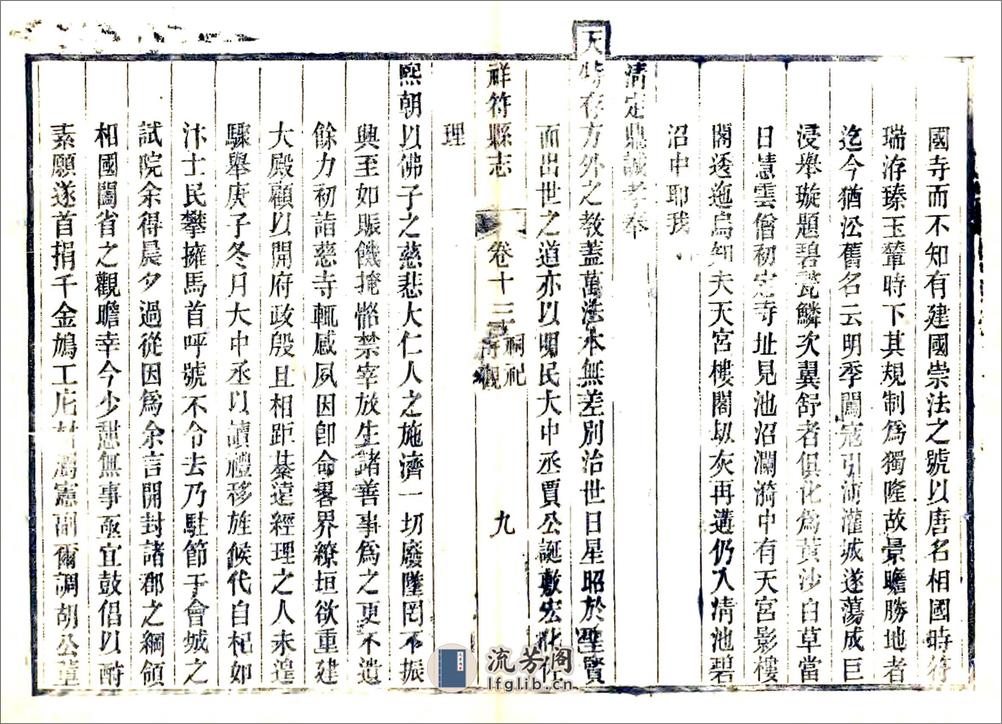 國寺而不知有建國崇法之號以唐名相國時符
瑞洊臻玉輦時下其規制爲獨隆故景瞻勝地者
迄今猶沿舊名云明季闖寇引河灌城遂蕩成巨
浸舉璇題碧甃鱗次翼舒者俱化爲黃沙白草當
日慧雲僧初定寺址見池沼瀾漪中有天宮影樓
閣透迤烏知夫天宮樓閣刼灰再遘仍入清池碧
沼中耶我
清定鼎誠孝奉
天時存方外之教蓋萬法本無差別治世日星昭於聖賢
而出世之道亦以明民大中丞賈公誕敷宏化佐
祥符縣志
卷十三
祠祀
寺觀
九
理
熙朝以佛子之慈悲大仁人之施濟一切廢墜罔不振
興至如賑饑掩骼禁宰放生諸善事爲之更不遺
餘力初詣慈寺輒感夙因卽命畧界繚垣欲重建
大殿顧以開府政殷且相距綦遠經理之人未遑
驟舉庚子冬月大中丞以讀禮移旌候代自杞如
汴士民攀擁馬首呼號不令去乃駐節于會城之
試院余得晨夕過從因爲余言開封諸郡之綱領
相國闔省之觀瞻幸今少憇無事亟宜鼓倡以酧
素願遂首捐千金鳩工庀材 憲副爾調胡公
流芳阁
lfglib.cn